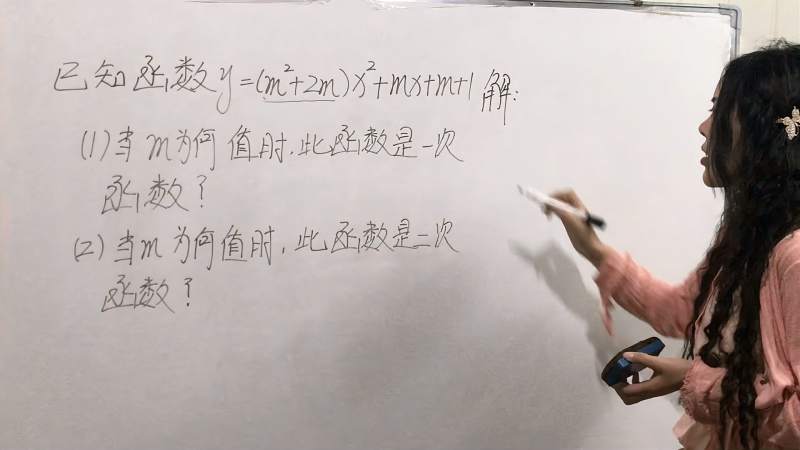 已知函数y=(m²+2m)x²+mx+m+1 解:
(1)当m为何值时,此函数是一次
函数?
(2)当m为何值时,此函数是二次
函数?